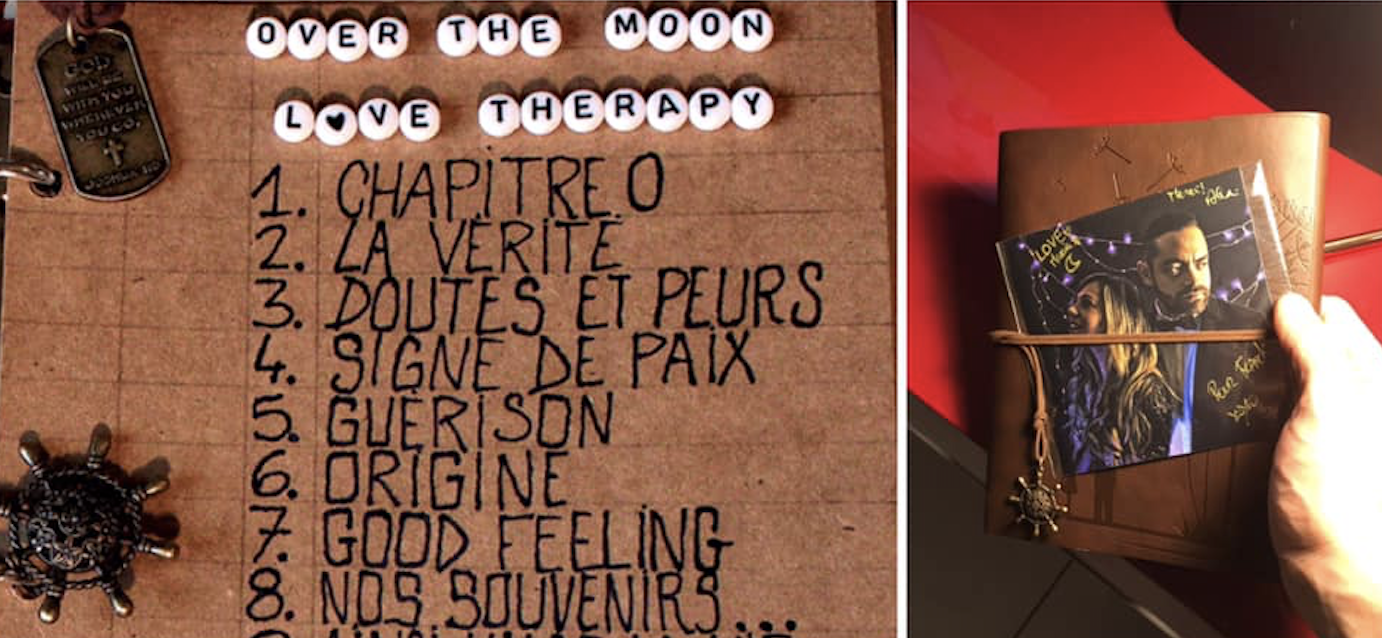 OVER THE MOON
L♥VE THERAPY
1. CHAPITRE 0
2. LA VÉRITÉ
3. DOUTES ET PEURS
4. SIGNE DE PAIX
5. GUÉRISON
6. ORIGINE
7. GOOD FEELING
8. NOS SOUVENIRS...
GOD
WILL BE
WITH YOU
WHEREVER
YOU GO.
JOSHUA 1:9
LOVE
Merci!
Pour